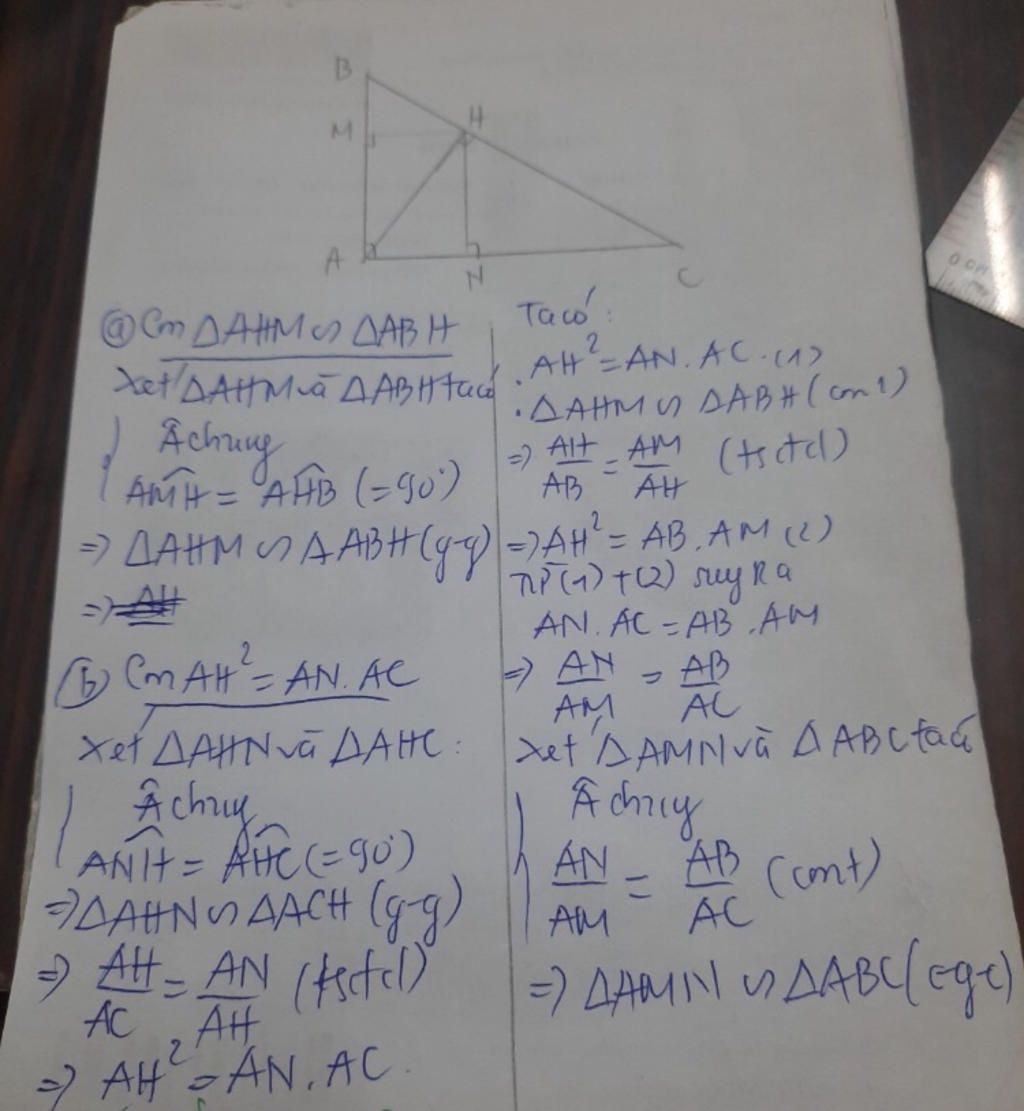 B
M
H
A
N
C
ⓐ Cm ΔAHM ∽ ΔABH
Xét ΔAHM và ΔABH ta có
Â chung
AM̂H = AĤB (=90°)
=> ΔAHM ∽ ΔABH (g-g)
=>
ⓑ Cm AH² = AN.AC
Xét ΔAHN và ΔAHC:
Â chung
AN̂H = AĤC (=90°)
=> ΔAHN ∽ ΔACH (g-g)
=> AH/AC = AN/AH (tstcl)
=> AH² = AN.AC.
Ta có:
. AH² = AN.AC. (1)
. ΔAHM ∽ ΔABH (cm t)
=> AH/AB = AM/AH (tstcl)
=> AH² = AB.AM (2)
Từ (1) + (2) suy Ra
AN.AC = AB.AM
=> AN/AM = AB/AC
Xét ΔAMN và ΔABC ta có
Â chung
AN/AM = AB/AC (cmt)
=> ΔAMN ∽ ΔABC (c-g-c)